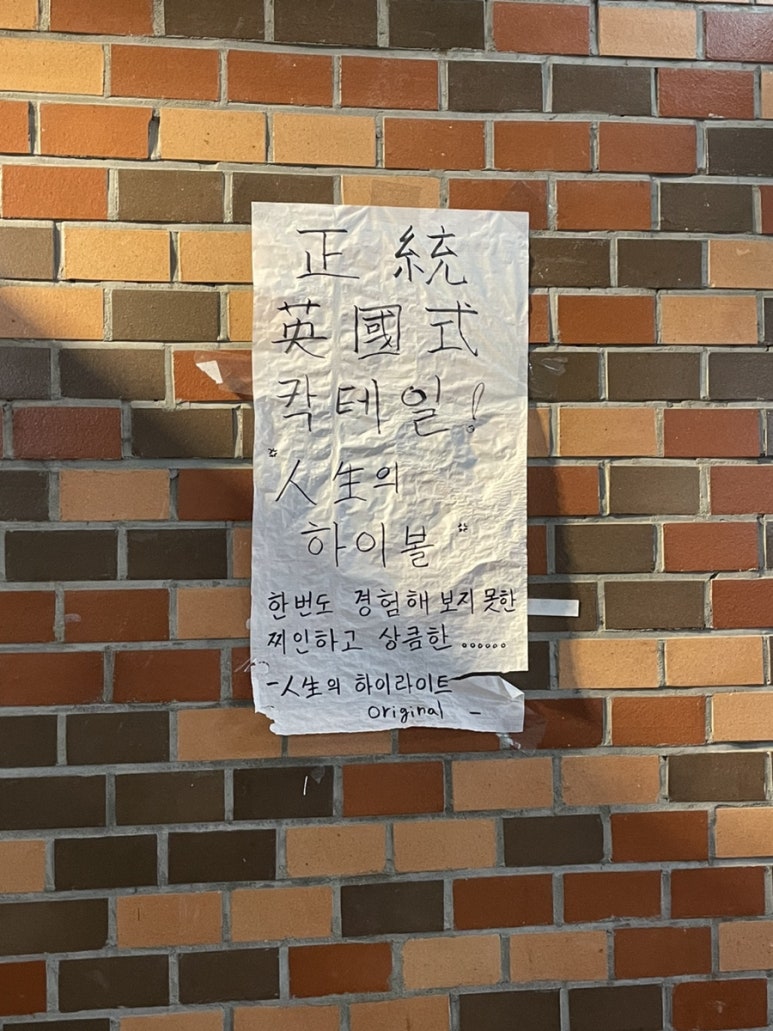 正統
英國式
칵테일!
"人生의
하이볼"
한번도 경험해 보지 못한
찌인하고 상큼한 ......
-人生의 하이라이트
Original -